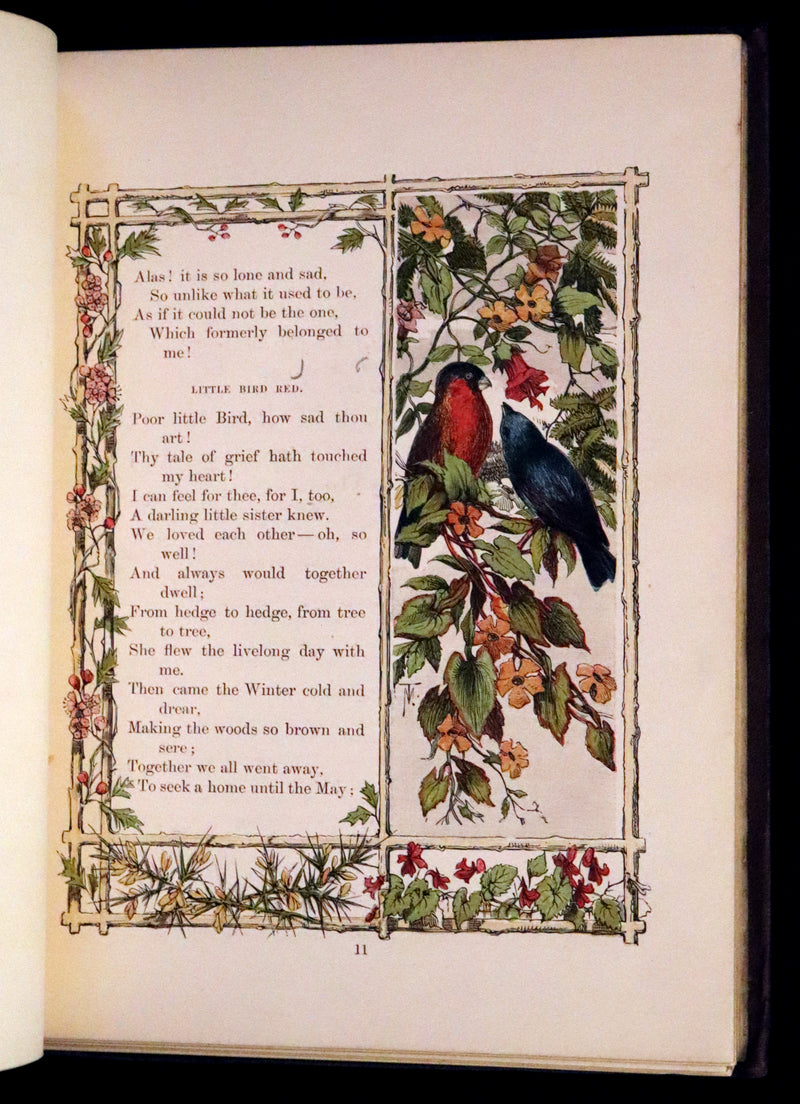 Alas! it is so lone and sad,
So unlike what it used to be,
As if it could not be the one,
Which formerly belonged to
me!
LITTLE BIRD RED.
Poor little Bird, how sad thou
art!
Thy tale of grief hath touched
my heart!
I can feel for thee, for I, too,
A darling little sister knew.
We loved each other—oh, so
well!
And always would together
dwell;
From hedge to hedge, from tree
to tree,
She flew the livelong day with
me.
Then came the Winter cold and
drear,
Making the woods so brown and
sere;
Together we all went away,
To seek a home until the May;
11